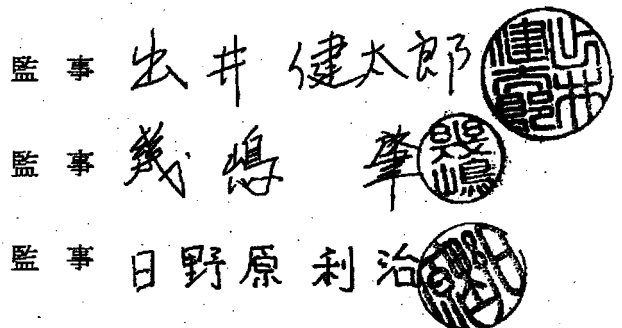 監事 出井 健太郎
監事 幾嶋 肇
監事 日野原 利治